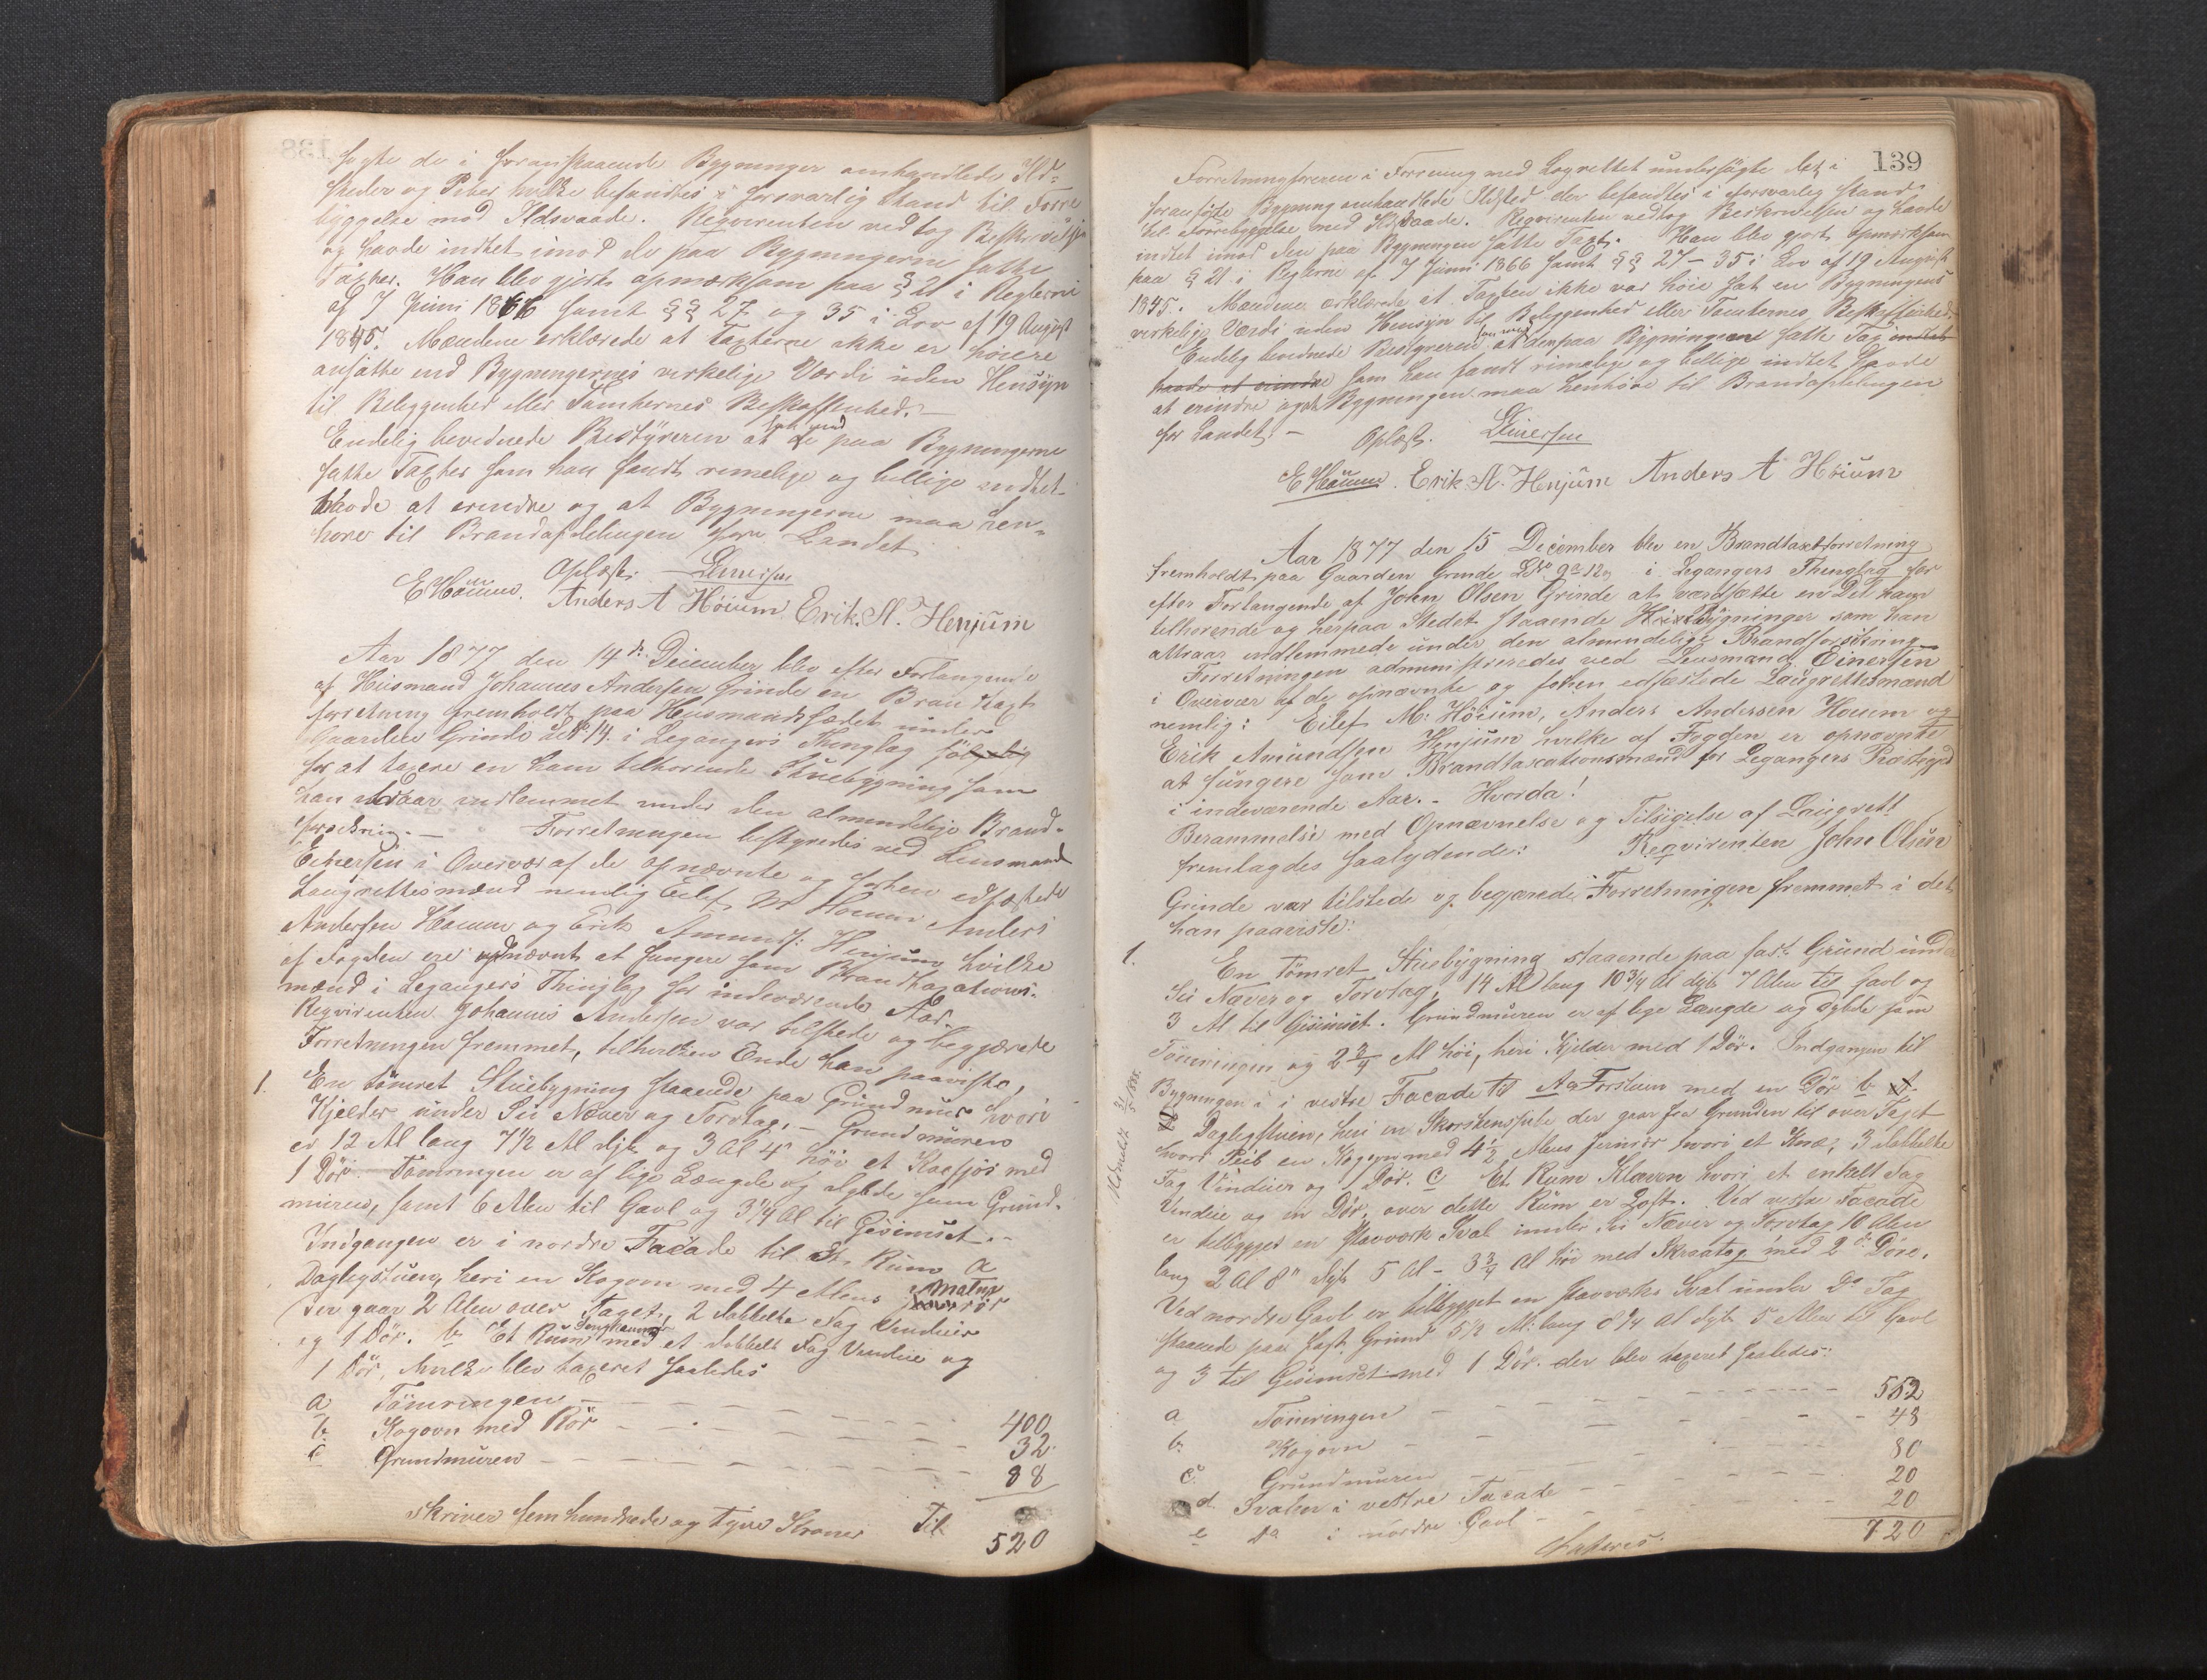 søgte de i foranstaaende Bygninger omhandlede Ild-
steder og Piber hvilke befandtes i forsvarlig Stand til Fore
byggelse mod Ildsvaade. Reqvirenten vedtog Beskrivelsen
og havde indtet imod de paa Bygningerne satte
Taxter. Han blev gjort opmærksom paa § 21 i Reglerne
af 7 Juni 1866 samt §§ 27 og 35 i Lov af 19 August
1845. Mændene erklærede at Taxterne ikke er høiere
ansatte end Bygningernes virkelige Værdi uden Hensyn
til Beliggenhed eller Tomternes Beskaffenhed. –
Endelig bevidnede Bestyreren at de paa Bygningerne
satte Taxter som han fandt rimelige og billige indtet
havde at erindre og at Bygningerne maa hen-
hører til Brandafdelingen for Landet
Oplæst. Einersen
E Høium. Anders A Høium Erik. A. Henjum
Aar 1877 den 14de December blev efter Forlangende
af Husmand Johannes Andersen Grinde en Brandtaxt
forretning fremholdt paa Husmandspladsen under
Gaarden Grinde LNo 14. i Legangers Thinglag
for at taxere en ham tilhørende Stuebygning som
han attraar indlemmet under den almindelige Brand-
forsikring. – Forretningen bestyredes ved Lensmand
Einersen i Overvær af de opnævnte og forhen edfæstede
Laugrettesmænd nemlig Eilef M Høium Anders
Andersen Høium og Erik Amunds: Henjum hvilke
af Fogden ere opnævnt at fungere som Brandtaxations-
mænd i Legangers Thinglag for indeværende Aar.
Reqvirenten Johannes Andersen var tilstede og begjærede
Forretningen fremmet, til hvilken Ende han paaviste,
1. En tømret Stuebygning staaende paa Grundmur hvori
Kjelder under Su Næver og Torvtag. – Grundmuren
er 12 Al lang 7 1/2 Al dyb og 3 Al 4" høi et med
1 Dør. Tømringen er af lige Længde og Dybde som Grund-
muren, samt 6 Alen til Gavl og 3 1/4 Al til Gesimset. –
Indgangen er i nordre Facade til Et Rum a
Dagligstuen, heri en Kogovn med 4 Alens rør
der gaar 2 Alen over Taget, 2 dobbelte Fag Vinduer
og 1 Dør. b Et Rum Senghammer med et dobbelt Fag Vindue og
1 Dør, hvilke blev taxeret saaledes
a Tømringen – – – – – – – – 400
b. Kogovn med Rør – – – – – – – 32
c Grundmuren – – – – – – – – 88
skriver fem hundrede og tyve Kroner Til 520
139
Forretningsføreren i Forening med Lagrettet undersøgte det i
foranførte Bygning omhandlede Ildsted der befandtes i forsvarlig Stand
til Forrebyggelse mod Ildsvaade. Reqvirenten vedtog Beskrivelsen og havde
indtet imod den paa Bygningen satte Taxt. Han blev gjort opmærksom
paa § 21 i Reglerne af 7 Juni 1866 samt §§ 27 – 35 i Lov af 19 August
1845. Mændene erklærede at Taxten ikke var høie sat en Bygningens
virkelige Værdi uden Hensyn til Beliggenhed eller Tomternes Beskaffenhed.
Endelig bevidnede Bestyreren at den paa Bygningen satte Tax indtet
havde at erindre som han fandt rimelige og billige indtet havde
at erindre og at Bygningen maa henhøre til Brandafdelingen
for Landet. – Oplæst. Einersen
E Høium. Erik A. Henjum Anders A Høium
Aar 1877 den 15 December blev en Brandtaxtforretning
fremholdt paa Gaarden Grinde LNo 9a 12 i Legangers Thinglag for
efter Forlangende af John Olsen Grinde at værdsætte en Del ham
tilhørende og herpaa Stedet staaende Husbygninger som han
attraar indlemmede under den almindelige Brandforsikring
Forretningen administreredes ved Lensmand Einersen
i Overvær af de opnævnte og forhen edfæstede Laugrettesmænd
nemlig: Eilef M. Høium, Anders Andersen Høium og
Erik Amundsen Henjum hvilke af Fogden er opnævnte
at fungere som Brandtaxationsmænd for Legangers Præstegjed
i indeværende Aar. – Hvorda!
Berammelse med Opnævnelse og Tilsigelse af Laugrett
fremlagdes saalydende: Reqvirenten John Olsen
Grinde var tilstede og begjærede Forretningen fremmet i det
han paaviste:
1. En Tømret Stuebygning staaende paa fast Grund under
Su Næver og Torvtag, 14 Al lang 10 3/4 Al dyb 7 Alen til Gavl og
3 Al til Gesimset. Grundmuren er af lige Længde og Dybde som
Tømringen og 2 3/4 Al høi, heri Kjelder med 1 Dør. Indgangen til
Bygningen i vestre Facade til A a Forstuen med en Dør b
Dagligstuen, heri en Skorstenspibe der gaar fra Grunden til over Taget
hvori Peis en Kogovn med 4 1/2 Alens Jernrør hvori et Knæ, 3 dobbelte
Fag Vinduer og 1 Dør. c Et Rum Kløven hvori et enkelt Fag
Vindue og en Dør, over dette Rum er Loft. Ved vestre Facade
er tilbygget en Stavværk Sval under Su Næver og Torvtag 10 Alen
lang 2 Al 8" dyb 5 Al – 3 3/4 Al høi med Skraatag med 2de Døre.
Ved nordre Gavl er tilbygget en Stavværks Sval under Do Tag
staaende paa fast Grund 5 1/2 Al: lang 8 1/4 Al dyb 5 Alen til Gavl
og 3 til Gesimset med 1 Dør. der blev taxeret saaledes:
a Tømringen – – – – – – – 552
b. Kogovn – – – – – – – 48
c. Grundmuren – – – – – – – 80
d. Svalen i vestre Facade – – – – 20
e Do i nordre Gavl – – – – 20
720